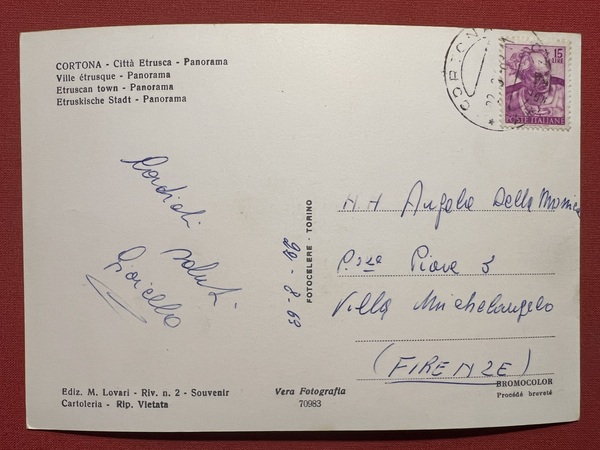 CORTONA - Città Etrusca - Panorama
Ville étrusque - Panorama
Etruscan town - Panorama
Etruskische Stadt - Panorama
CORTONA
15
LIRE
POSTE ITALIANE
Cordiali
saluti
Gioiello
22 - 8 - 63
FOTOCELERE · TORINO
Angela Della Monica
P.zza Piave 3
Villa Michelangelo
(FIRENZE)
BROMOCOLOR
Procédé breveté
Ediz. M. Lovari - Riv. n. 2 - Souvenir
Cartoleria - Rip. Vietata
Vera Fotografia
70983